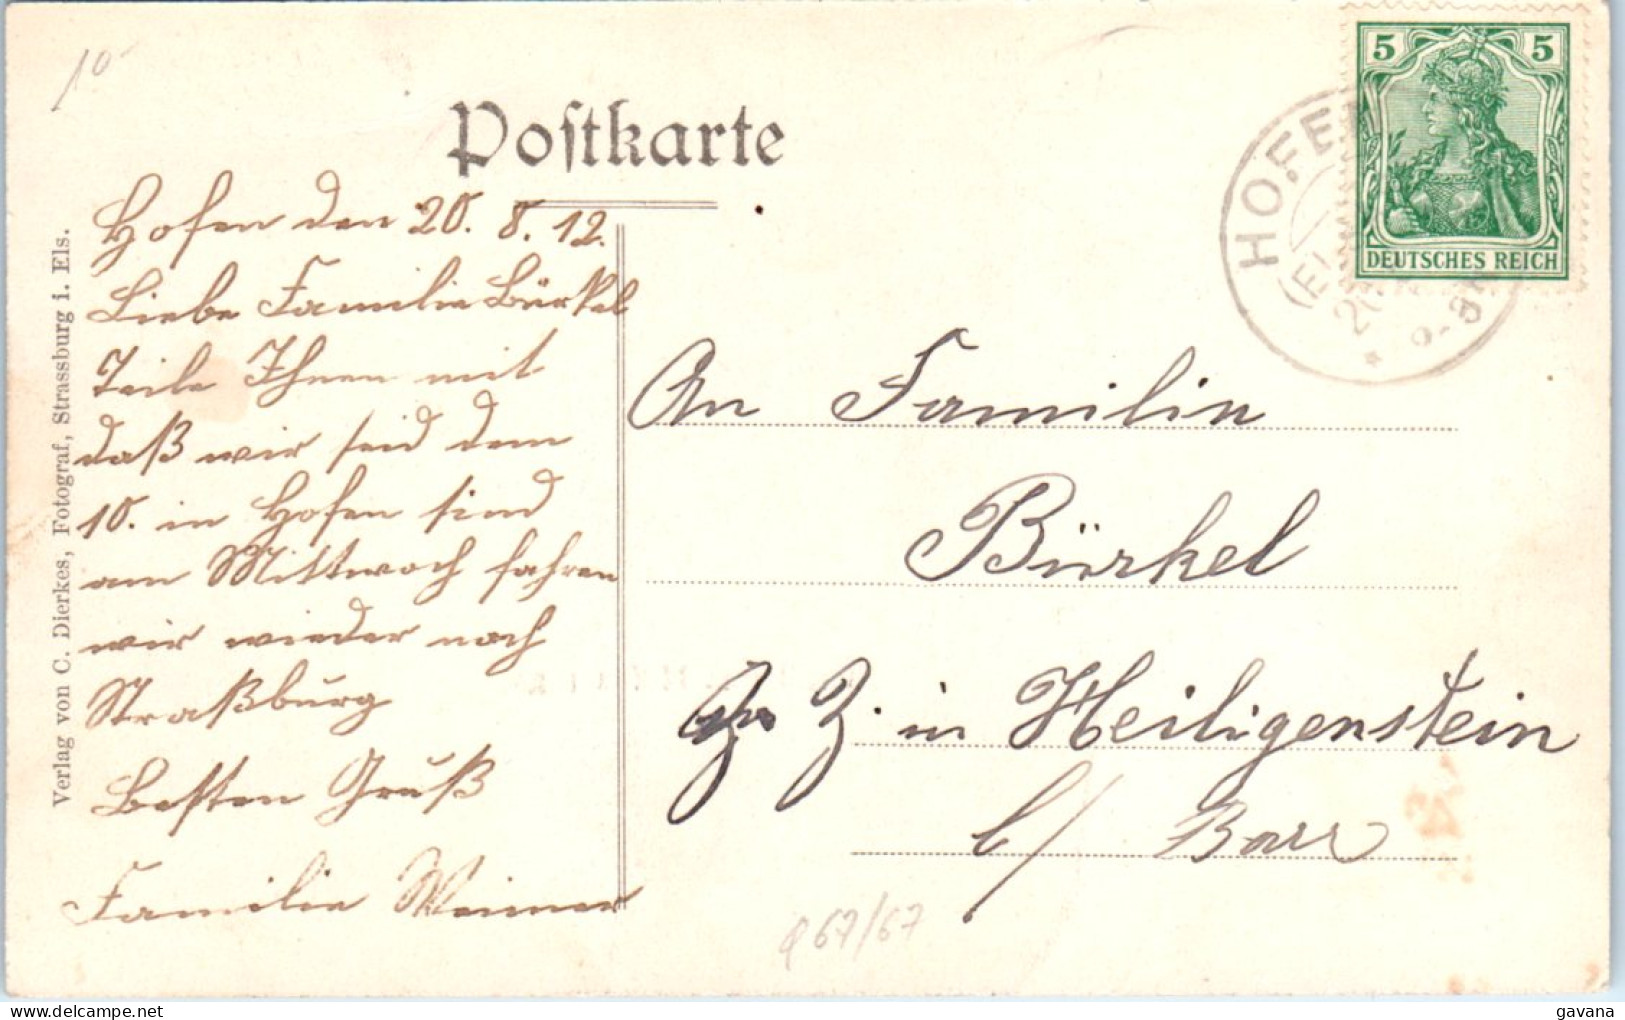 10
Postkarte
Hofen den 20. 8. 12.
Liebe Familie Bürkel
Teile Ihnen mit
daß wir seid dem
10. in Hofen sind
am Mittwoch fahren
wir wieder nach
Straßburg
Besten Gruß
Familie Weimer
Verlag von C. Dierkes, Fotograf, Strassburg i. Els.
5 5
DEUTSCHES REICH
HOFE
(El
20.
An Familie
Bürkel
z. Z. in Heiligenstein
b/ Barr
67/67
gavana